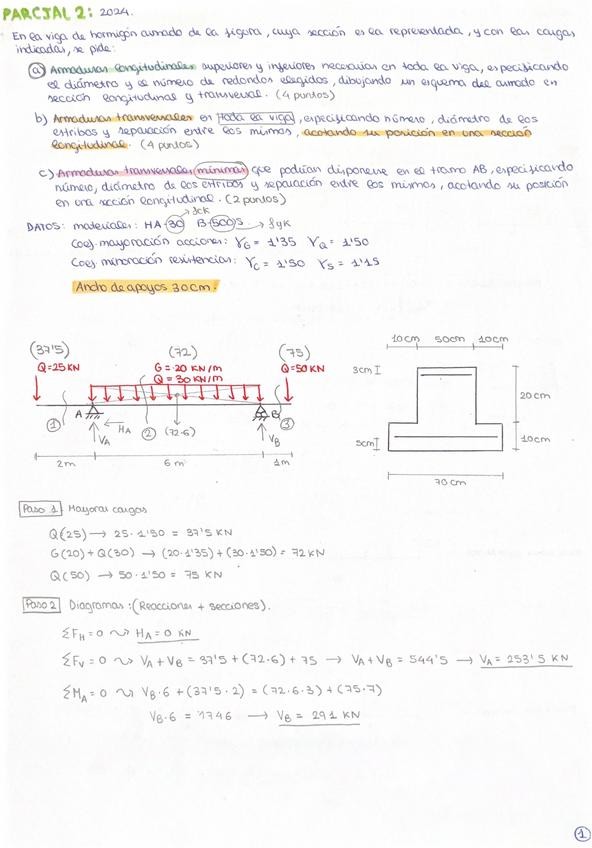 PARCIAL 2: 2024.
En la viga de hormigón armado de la figura, cuya sección es la representada, y con las cargas
indicadas, se pide:
a) Armaduras longitudinales superiores y inferiores necesarias en toda la viga, especificando
el diámetro y el número de redondos elegidos, dibujando un esquema del armado en
sección longitudinal y transversal. (4 puntos)
b) Armaduras transversales en toda la viga, especificando número, diámetro de los
estribos y separación entre los mismos, acotando su posición en una sección
longitudinal. (4 puntos)
c) Armaduras transversales mínimas que podrían disponerse en el tramo AB, especificando
número, diámetro de los estribos y separación entre los mismos, acotando su posición
en una sección longitudinal. (2 puntos)
fck
DATOS: materiales: HA-30 B-500S → fyk
Coef. mayoración acciones: γG = 1'35 γQ = 1'50
Coef. minoración resistencias: γc = 1'50 γs = 1'15
Ancho de apoyos 30cm.
(37'5) (72) (75)
Q=25KN G=20 KN/m Q=50KN
Q=30KN/m
A B
1 HA 2 (72·6) 3
VA VB
2m 6m 1m
10cm 50cm 10cm
3cm
20cm
5cm 10cm
70cm
Paso 1: Mayorar cargas
Q(25) → 25·1'50 = 37'5 KN
G(20) + Q(30) → (20·1'35) + (30·1'50) = 72 KN
Q(50) → 50·1'50 = 75 KN
Paso 2 Diagramas: (Reacciones + secciones).
ΣFH = 0 ⤳ HA = 0 KN
ΣFV = 0 ⤳ VA + VB = 37'5 + (72·6) + 75 → VA + VB = 544'5 → VA = 253'5 KN
ΣMA = 0 ⤳ VB·6 + (37'5·2) = (72·6·3) + (75·7)
VB·6 = 1746 → VB = 291 KN
1